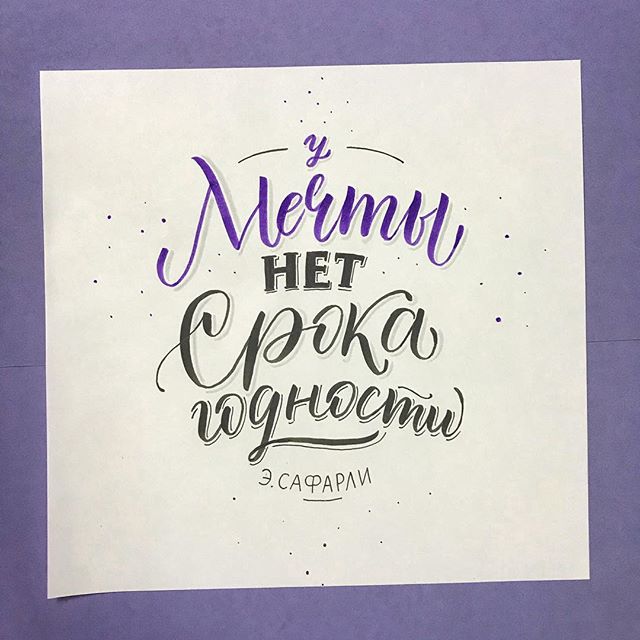 у
Мечты
НЕТ
Срока
годности
Э.САФАРЛИ